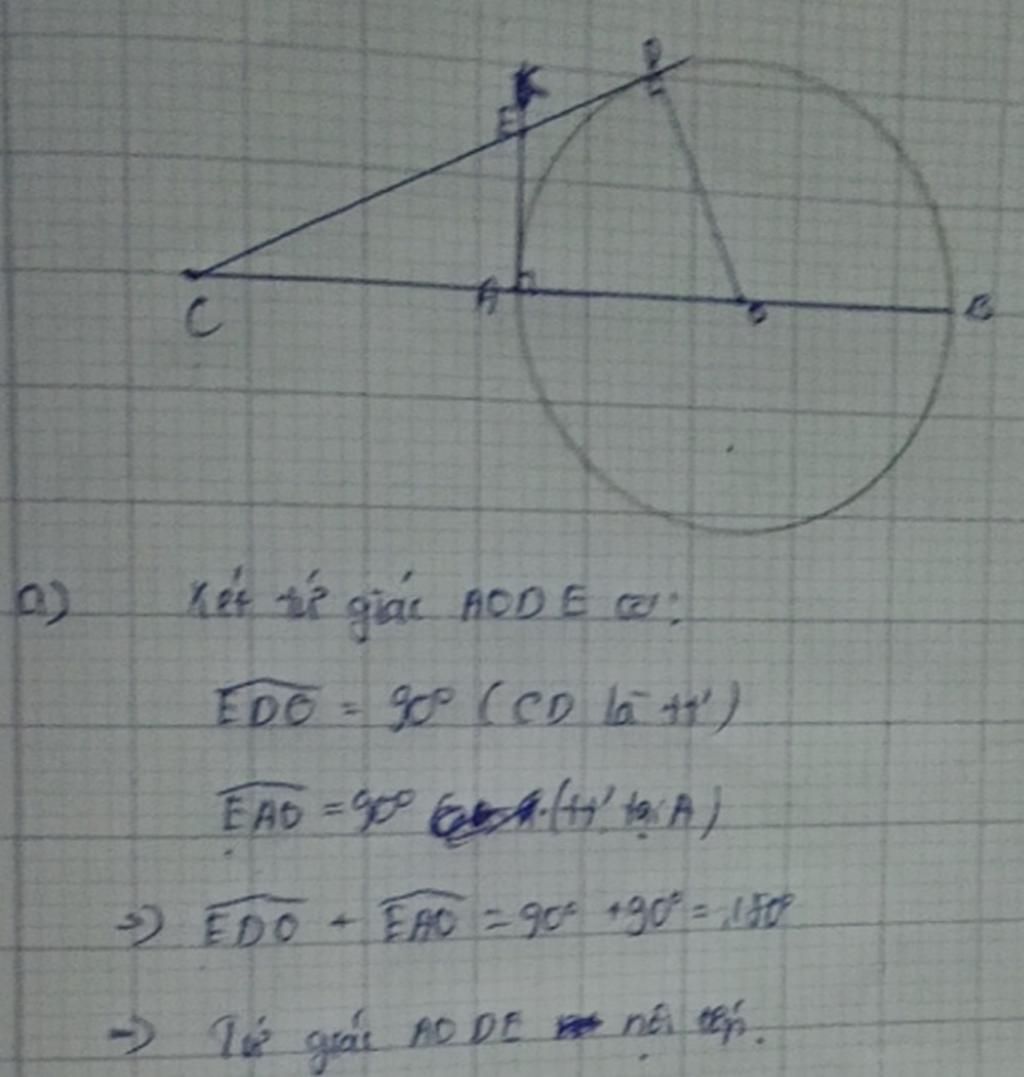 D
E
C
A
O
B
a) Xét tứ giác AODE có:
EDO = 90° (CD là tt')
EAO = 90° (tt' tại A)
=> EDO + EAO = 90° + 90° = 180°
=> Tứ giác AODE nội tiếp.